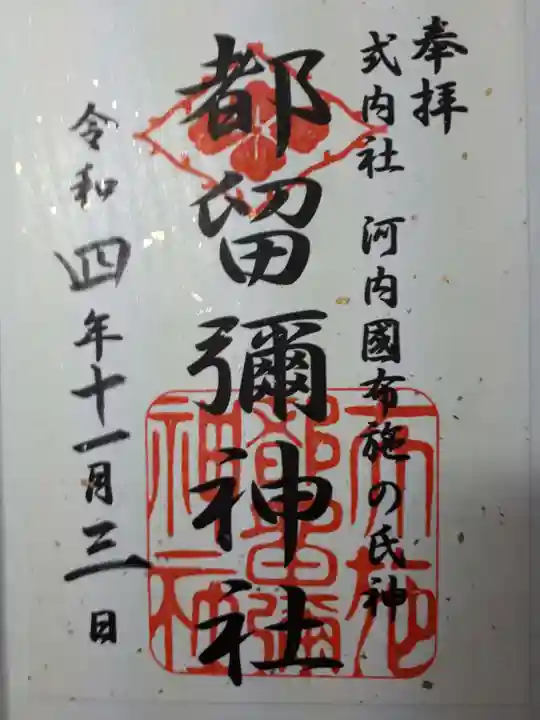 奉拝
式内社 河内國布施の氏神
都留彌神社
令和四年十一月三日
布施
都留彌
神社